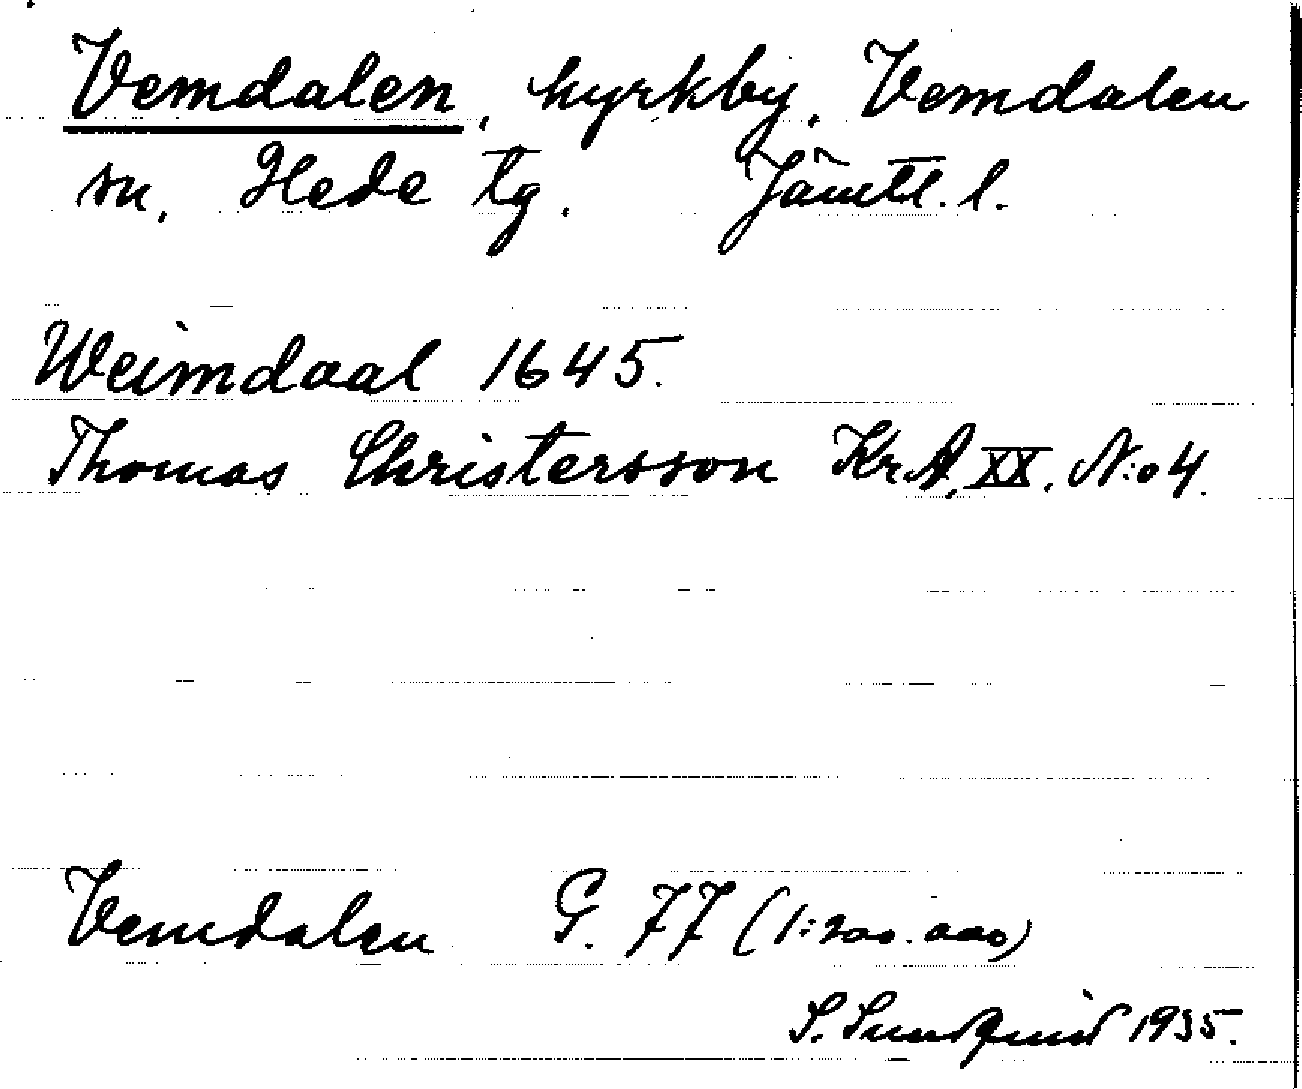 Vemdalen, kyrkby, Vemdalen
sn, Hede tg. Jämtl. l.
Weimdaal 1645.
Thomas Christersson Kr.A. XX. N:o 4.
Vemdalen G. 77 (1:200.000)
S. Sundquist 1935.